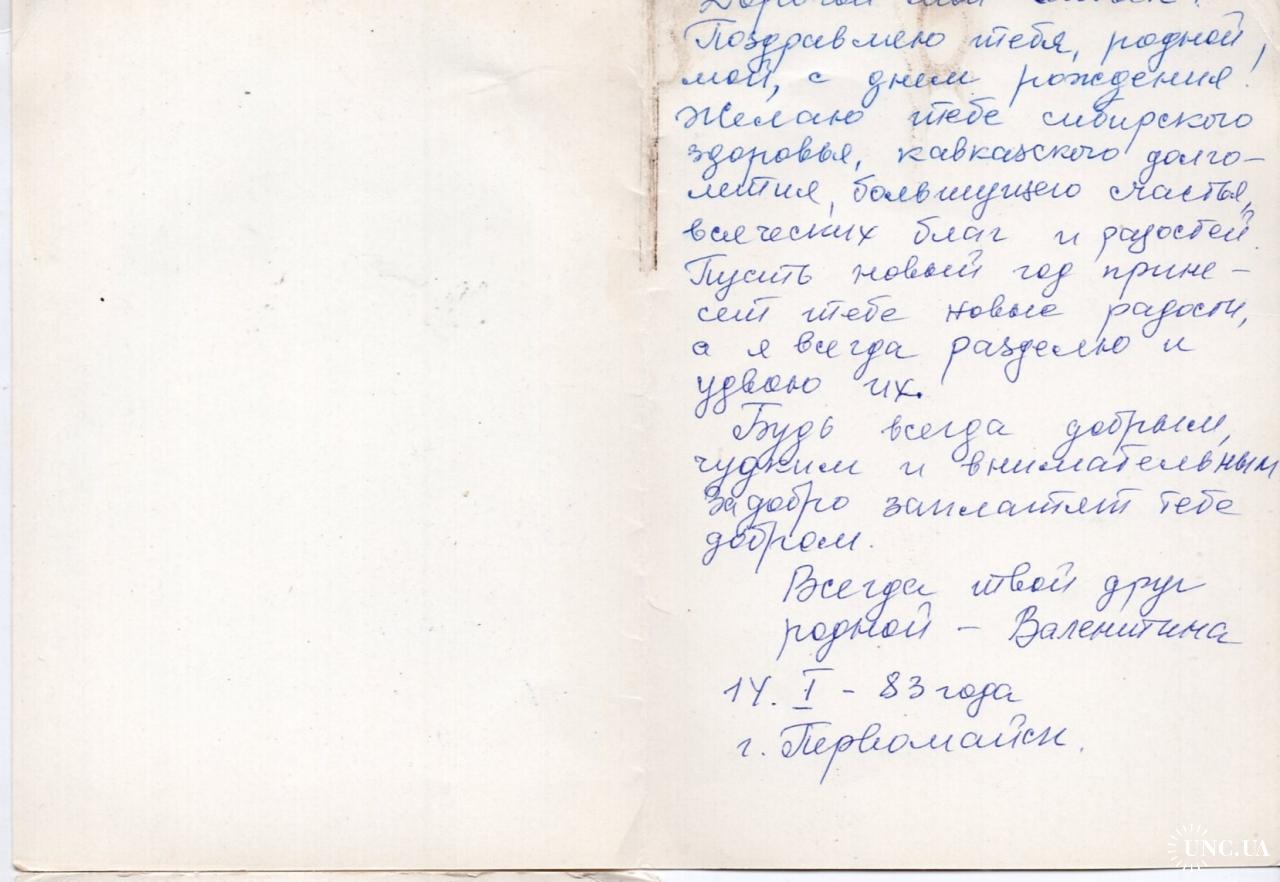 Дорогой мой
Поздравляю тебя, родной,
мой, с днем рождения!
Желаю тебе сибирского
здоровья, кавказского долго-
летия, большущего счастья,
всяческих благ и радостей.
Пусть новый год прине-
сет тебе новые радости,
а я всегда разделю и
удвою их.
Будь всегда добрым,
чутким и внимательным
За добро заплатят тебе
добром.
Всегда твой друг
родной - Валентина
14. I - 83 года
г. Первомайск.
UNC.UA